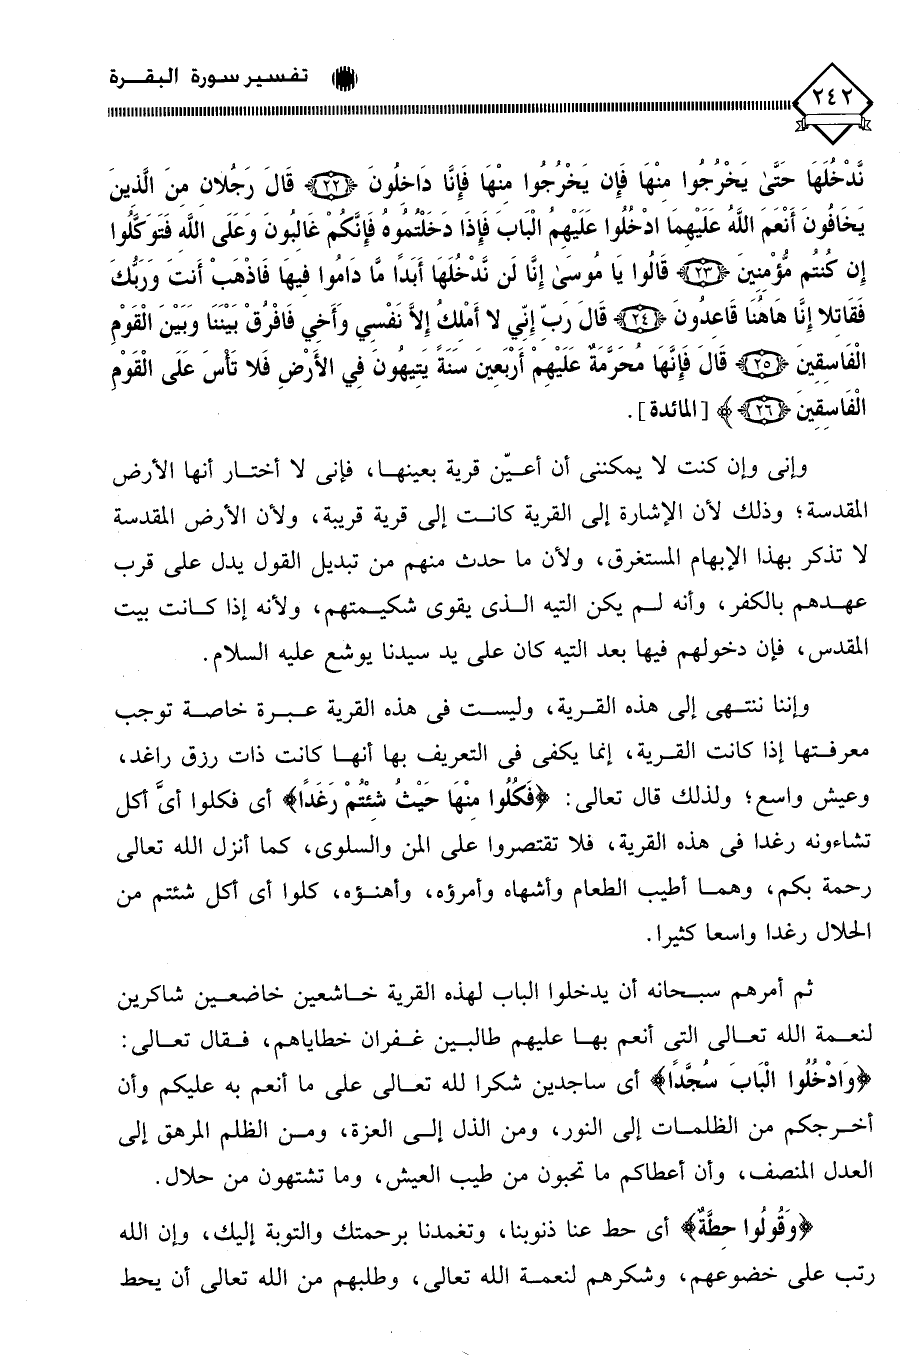 تفسير سورة البقرة
٢٤٢
نَّدْخُلَهَا حَتَّىٰ يَخْرُجُوا مِنْهَا فَإِن يَخْرُجُوا مِنْهَا فَإِنَّا دَاخِلُونَ ﴿٢٢﴾ قَالَ رَجُلانِ مِنَ الَّذِينَ
يَخَافُونَ أَنْعَمَ اللَّهُ عَلَيْهِمَا ادْخُلُوا عَلَيْهِمُ الْبَابَ فَإِذَا دَخَلْتُمُوهُ فَإِنَّكُمْ غَالِبُونَ وَعَلَى اللَّهِ فَتَوَكَّلُوا
إِن كُنتُم مُّؤْمِنِينَ ﴿٢٣﴾ قَالُوا يَا مُوسَىٰ إِنَّا لَن نَّدْخُلَهَا أَبَدًا مَّا دَامُوا فِيهَا فَاذْهَبْ أَنتَ وَرَبُّكَ
فَقَاتِلا إِنَّا هَاهُنَا قَاعِدُونَ ﴿٢٤﴾ قَالَ رَبِّ إِنِّي لا أَمْلِكُ إِلاَّ نَفْسِي وَأَخِي فَافْرُقْ بَيْنَنَا وَبَيْنَ الْقَوْمِ
الْفَاسِقِينَ ﴿٢٥﴾ قَالَ فَإِنَّهَا مُحَرَّمَةٌ عَلَيْهِمْ أَرْبَعِينَ سَنَةً يَتِيهُونَ فِي الأَرْضِ فَلا تَأْسَ عَلَى الْقَوْمِ
الْفَاسِقِينَ ﴿٢٦﴾ ﴾ [المائدة].
وإنى وإن كنت لا يمكننى أن أعيّن قرية بعينها، فإنى لا أختار أنها الأرض
المقدسة؛ وذلك لأن الإشارة إلى القرية كانت إلى قرية قريبة، ولأن الأرض المقدسة
لا تذكر بهذا الإبهام المستغرق، ولأن ما حدث منهم من تبديل القول يدل على قرب
عهدهم بالكفر، وأنه لم يكن التيه الذى يقوى شكيمتهم، ولأنه إذا كانت بيت
المقدس، فإن دخولهم فيها بعد التيه كان على يد سيدنا يوشع عليه السلام.
وإننا ننتهى إلى هذه القرية، وليست فى هذه القرية عبرة خاصة توجب
معرفتها إذا كانت القرية، إنما يكفى فى التعريف بها أنها كانت ذات رزق راغد،
وعيش واسع؛ ولذلك قال تعالى: ﴿فَكُلُوا مِنْهَا حَيْثُ شِئْتُمْ رَغَدًا﴾ أى فكلوا أىَّ أكل
تشاءونه رغدا فى هذه القرية، فلا تقتصروا على المن والسلوى، كما أنزل الله تعالى
رحمة بكم، وهما أطيب الطعام وأشهاه وأمرؤه، وأهنؤه، كلوا أى أكل شئتم من
الحلال رغدا واسعا كثيرا.
ثم أمرهم سبحانه أن يدخلوا الباب لهذه القرية خاشعين خاضعين شاكرين
لنعمة الله تعالى التى أنعم بها عليهم طالبين غفران خطاياهم، فقال تعالى:
﴿وَادْخُلُوا الْبَابَ سُجَّدًا﴾ أى ساجدين شكرا لله تعالى على ما أنعم به عليكم وأن
أخرجكم من الظلمات إلى النور، ومن الذل إلى العزة، ومن الظلم المرهق إلى
العدل المنصف، وأن أعطاكم ما تحبون من طيب العيش، وما تشتهون من حلال.
﴿وَقُولُوا حِطَّةٌ﴾ أى حط عنا ذنوبنا، وتغمدنا برحمتك والتوبة إليك، وإن الله
رتب على خضوعهم، وشكرهم لنعمة الله تعالى، وطلبهم من الله تعالى أن يحط